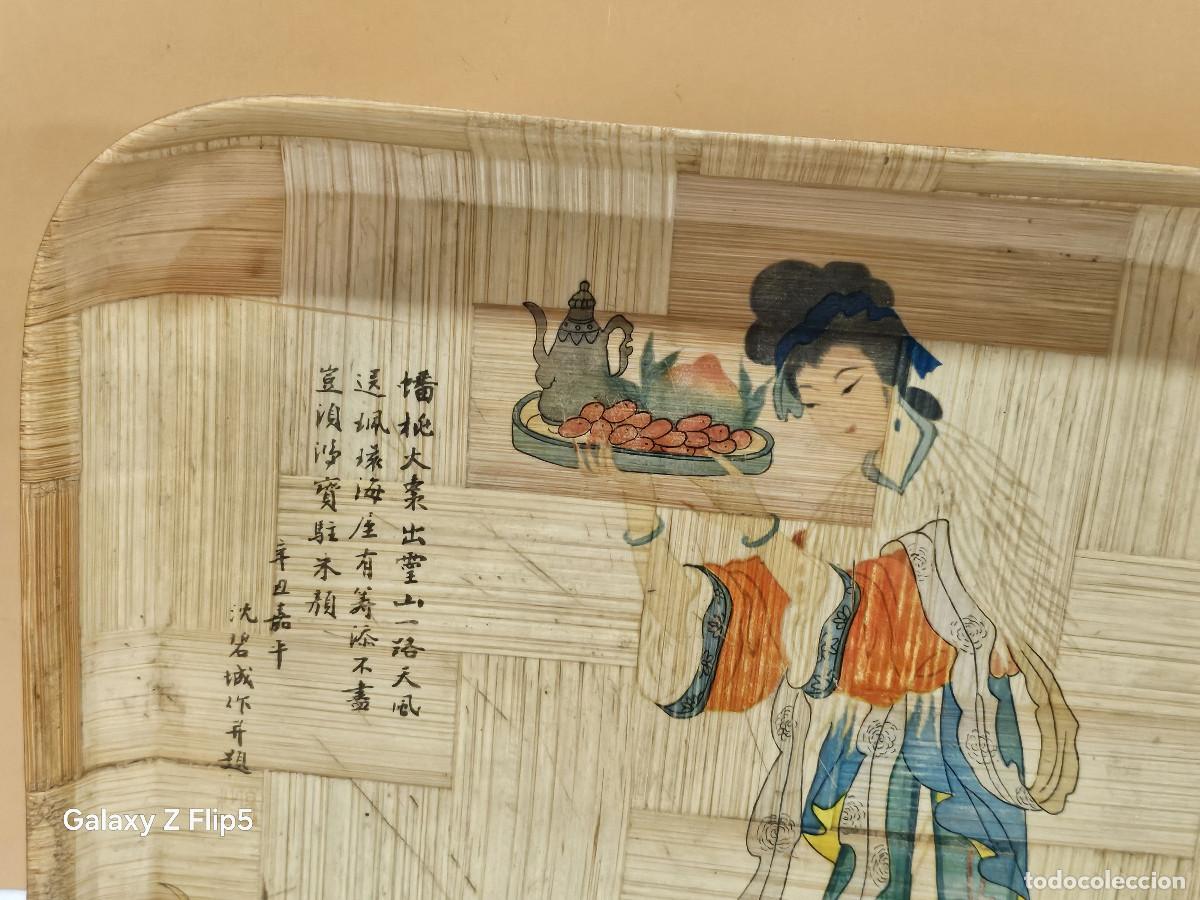 蟠桃大棗出靈山一路天風
送珮環海屋有籌添不盡
豈須沙寶駐朱顏
辛丑嘉平
沈碧城作并題
Galaxy Z Flip5
todocoleccion